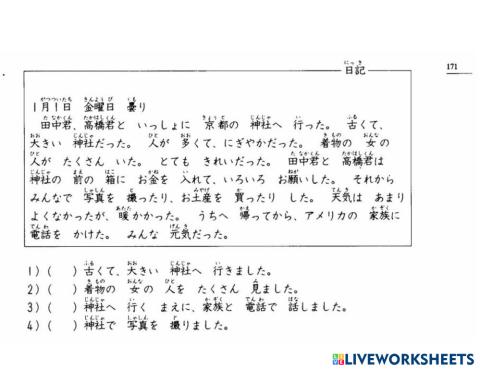 日記
171
1月1日 金曜日 曇り
田中君、高橋君と いっしょに 京都の 神社へ 行った。 古くて、
大きい 神社だった。 人が 多くて、にぎやかだった。 着物の 女の
人が たくさん いた。 とても きれいだった。 田中君と 高橋君は
神社の 前の 箱に お金を 入れて、いろいろ お願いした。 それから
みんなで 写真を 撮ったり、お土産を 買ったり した。 天気は あまり
よくなかったが、暖かかった。 うちへ 帰ってから、アメリカの 家族に
電話を かけた。 みんな 元気だった。
1) ( ) 古くて、大きい 神社へ 行きました。
2) ( ) 着物の 女の 人を たくさん 見ました。
3) ( ) 神社へ 行く まえに、家族と 電話で 話しました。
4) ( ) 神社で 写真を 撮りました。
LIVEWORKSHEETS